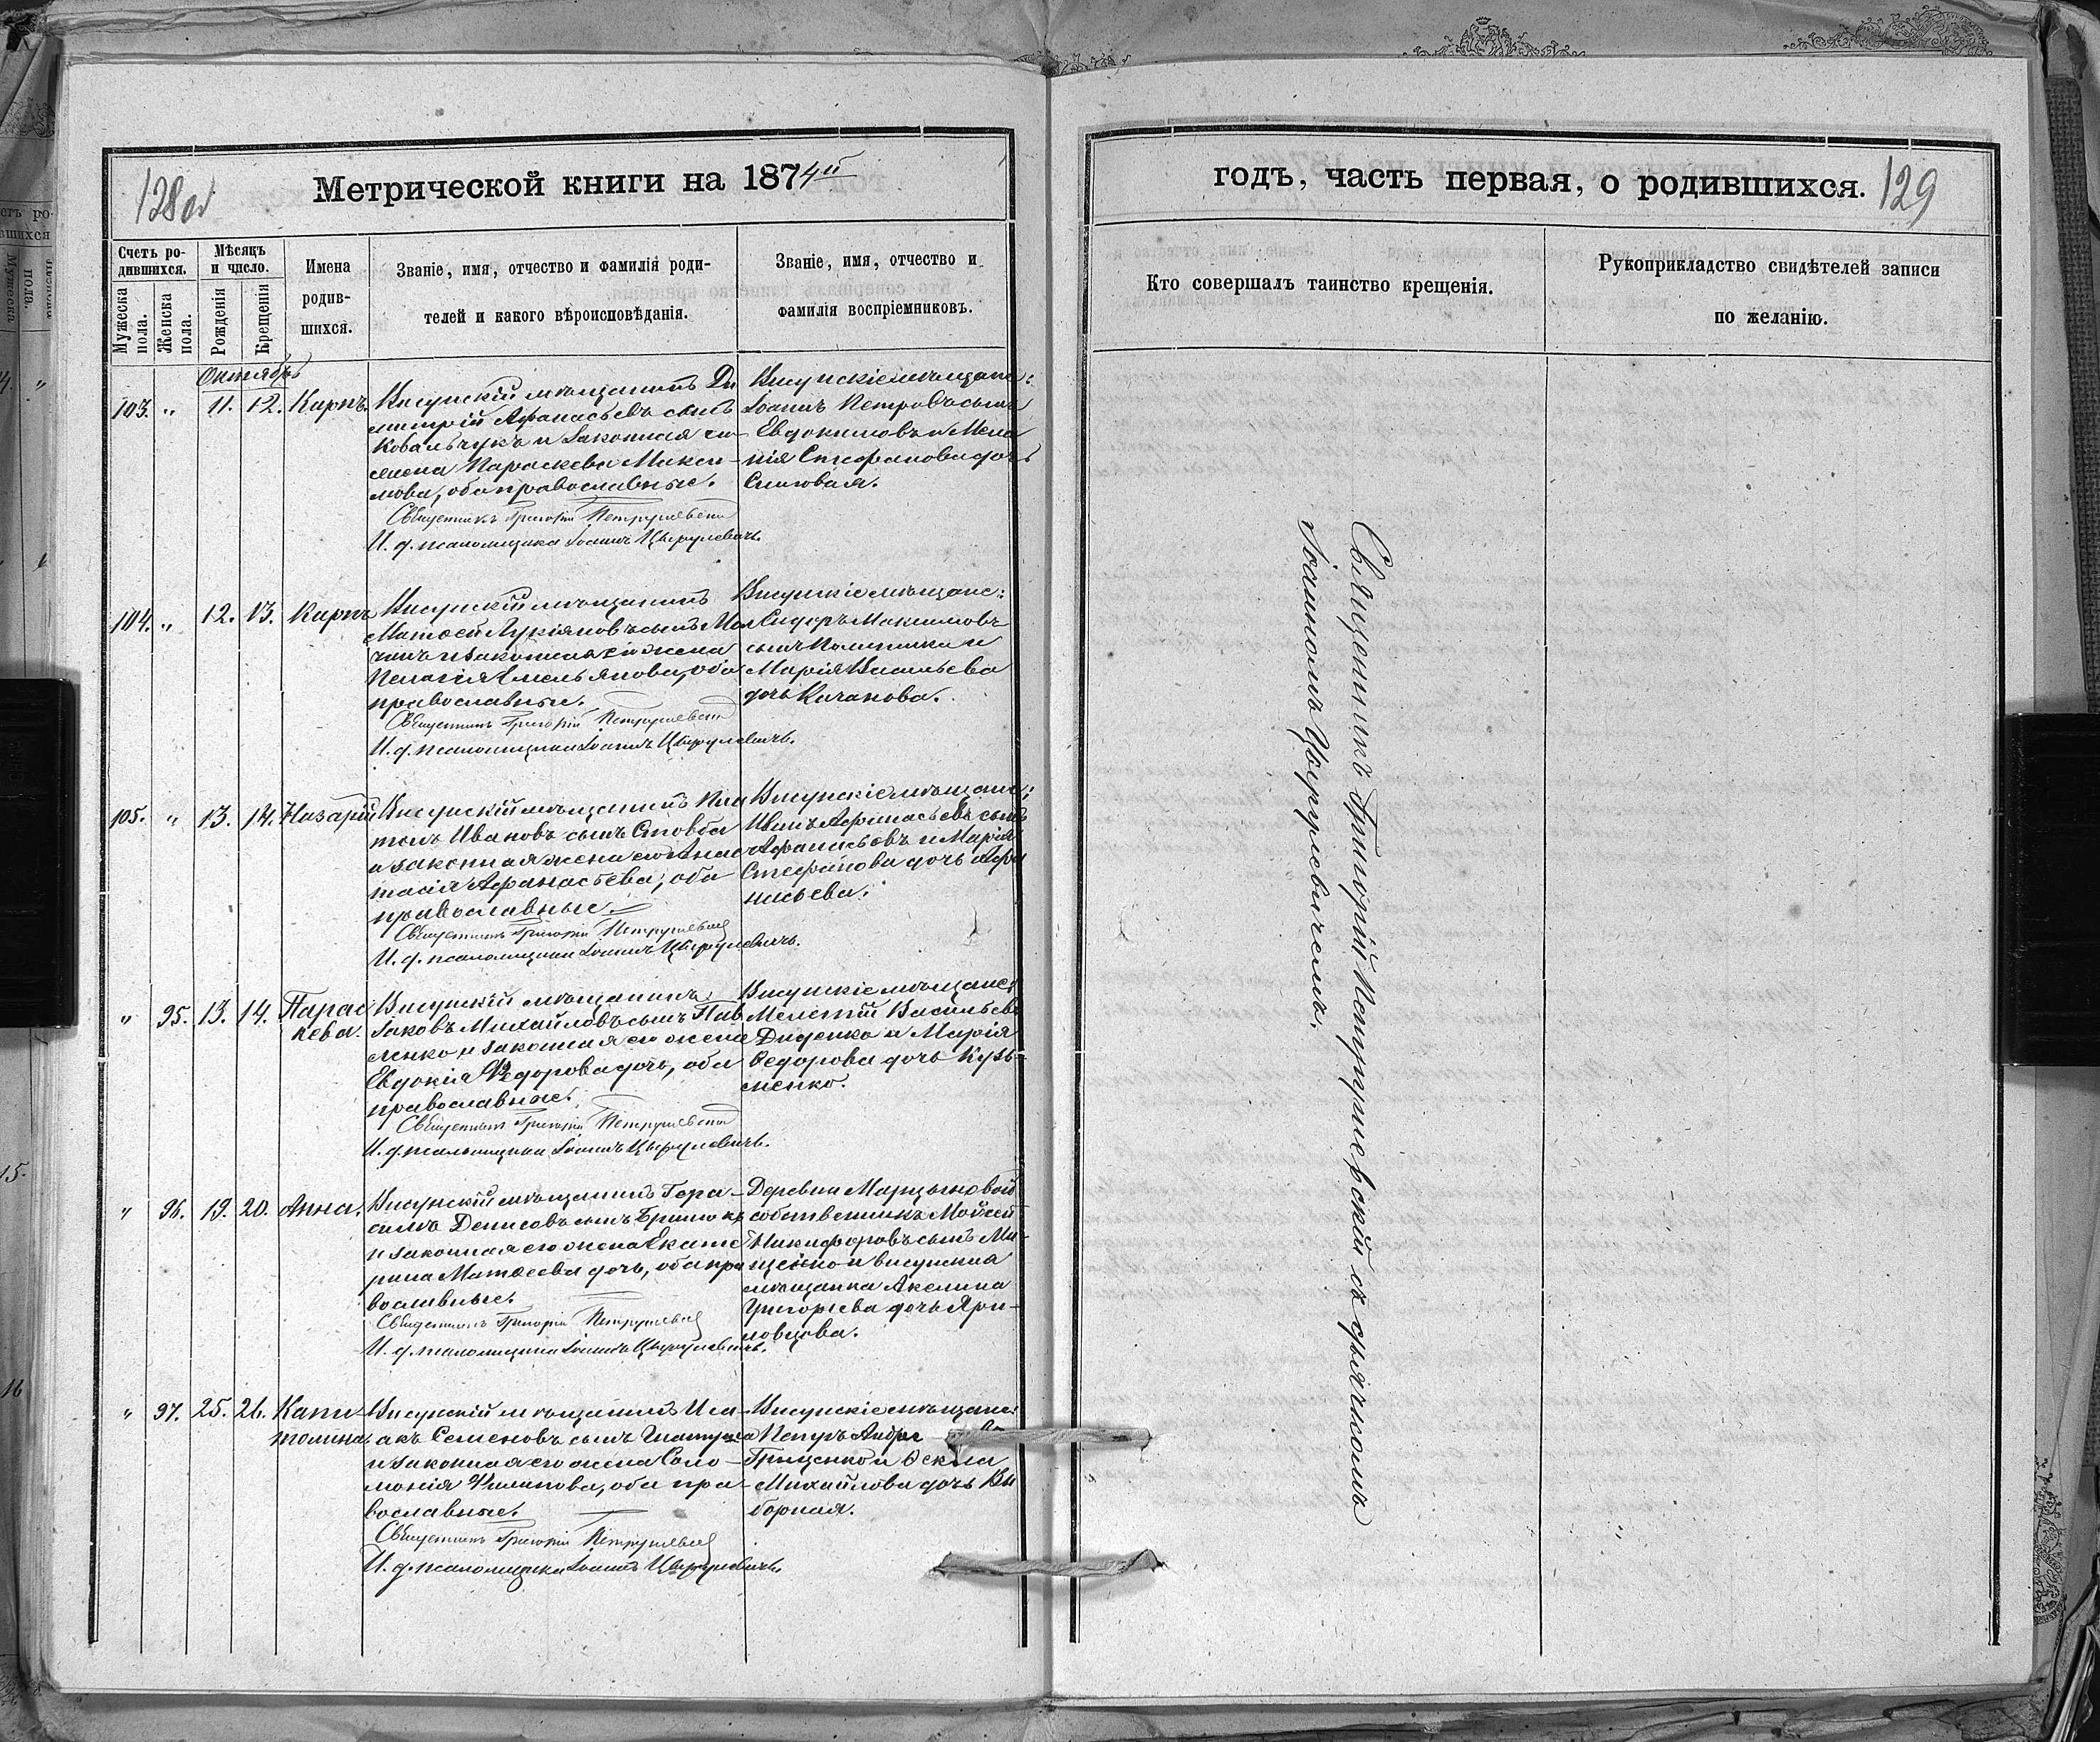 128 об
Метрической книги на 1874й
Счетъ ро-
дившихся.
Мѣсяцъ
и число.
Имена
родив-
шихся.
Званіе, имя, отчество и фамилія роди-
телей и какого вѣроисповѣданія.
Званіе, имя, отчество и
фамилія воспріемниковъ.
Мужеска
пола.
Женска
пола.
Рожденія
Крещенія
Октябрь
103. „ 11. 12. Карпъ.
Висунскій мѣщанинъ Ди
митрій Афанасьевъ сынъ
Ковальчукъ и законная его
жена Параскева Макси-
мова, оба православные.
Священникъ Григорій Петрушевскій
И. д. псаломщика Іоаннъ Цырулевичъ.
Висунскіе мѣщане:
Іоаннъ Петровъ сынъ
Евдокимовъ и Мела
нія Стефанова дочь
104. „ 12. 13. Карпъ
Висунскій мѣщанинъ
Матѳей Лукіяновъ сынъ
и законная его жена
Пелагія Емельянова, оба
православные.
Священникъ Григорій Петрушевскій
И. д. псаломщика Іоаннъ Цырулевичъ.
Висунскіе мѣщане:
Сидоръ Максимовъ
сынъ и
Марія Васильева
дочь Качанова.
105. „ 13. 14. Назарій
Висунскій мѣщанинъ Пла
тонъ Ивановъ сынъ Стовба
и законная жена его Анас
тасія Афанасьева, оба
православные.
Священникъ Григорій Петрушевскій
И. д. псаломщика Іоаннъ Цырулевичъ.
Висунскіе мѣщане:
Иванъ Афанасьевъ сынъ
Афанасьевъ и Марія
Стефанова дочь Афа
насьева.
„ 95. 13. 14. Парас
кева.
Висунскій мѣщанинъ
Іаковъ Михайловъ сынъ Пав
ленко и законная его жена
Евдокія Ѳедорова дочь, оба
православные.
Священникъ Григорій Петрушевскій
И. д. псаломщика Іоаннъ Цырулевичъ.
Висунскіе мѣщане:
Мелетій Васильевъ
Диденко и Марія
Ѳедорова дочь Кузь-
менко.
„ 96. 19. 20. Анна.
Висунскій мѣщанинъ Гера-
симъ Денисовъ сынъ
и законная его жена Екате
рина Матѳеева дочь, оба пра
вославные.
Священникъ Григорій Петрушевскій
И. д. псаломщика Іоаннъ Цырулевичъ.
Деревни Марцыновой
собственникъ Мойсей
Никифоровъ сынъ Ми-
щенко и висунская
мѣщанка Акелина
Григорьева дочь Яри-
ловцова.
„ 97. 25. 26. Капи
толина.
Висунскій мѣщанинъ Иса-
акъ Семеновъ сынъ
и законная его жена Соло-
монія Филипова, оба пра-
вославные.
Священникъ Григорій Петрушевскій
И. д. псаломщика Іоаннъ Цырулевичъ.
Висунскіе мѣщане:
Петръ Андре
Грищенко и Ѳекла
Михайлова дочь Вы
борная.
годъ, часть первая, о родившихся.
129
Кто совершалъ таинство крещенія.
Рукоприкладство свидѣтелей записи
по желанію.
Священникъ Григорій Петрушевскій съ дьячкомъ
Іоанномъ Цырулевичемъ.